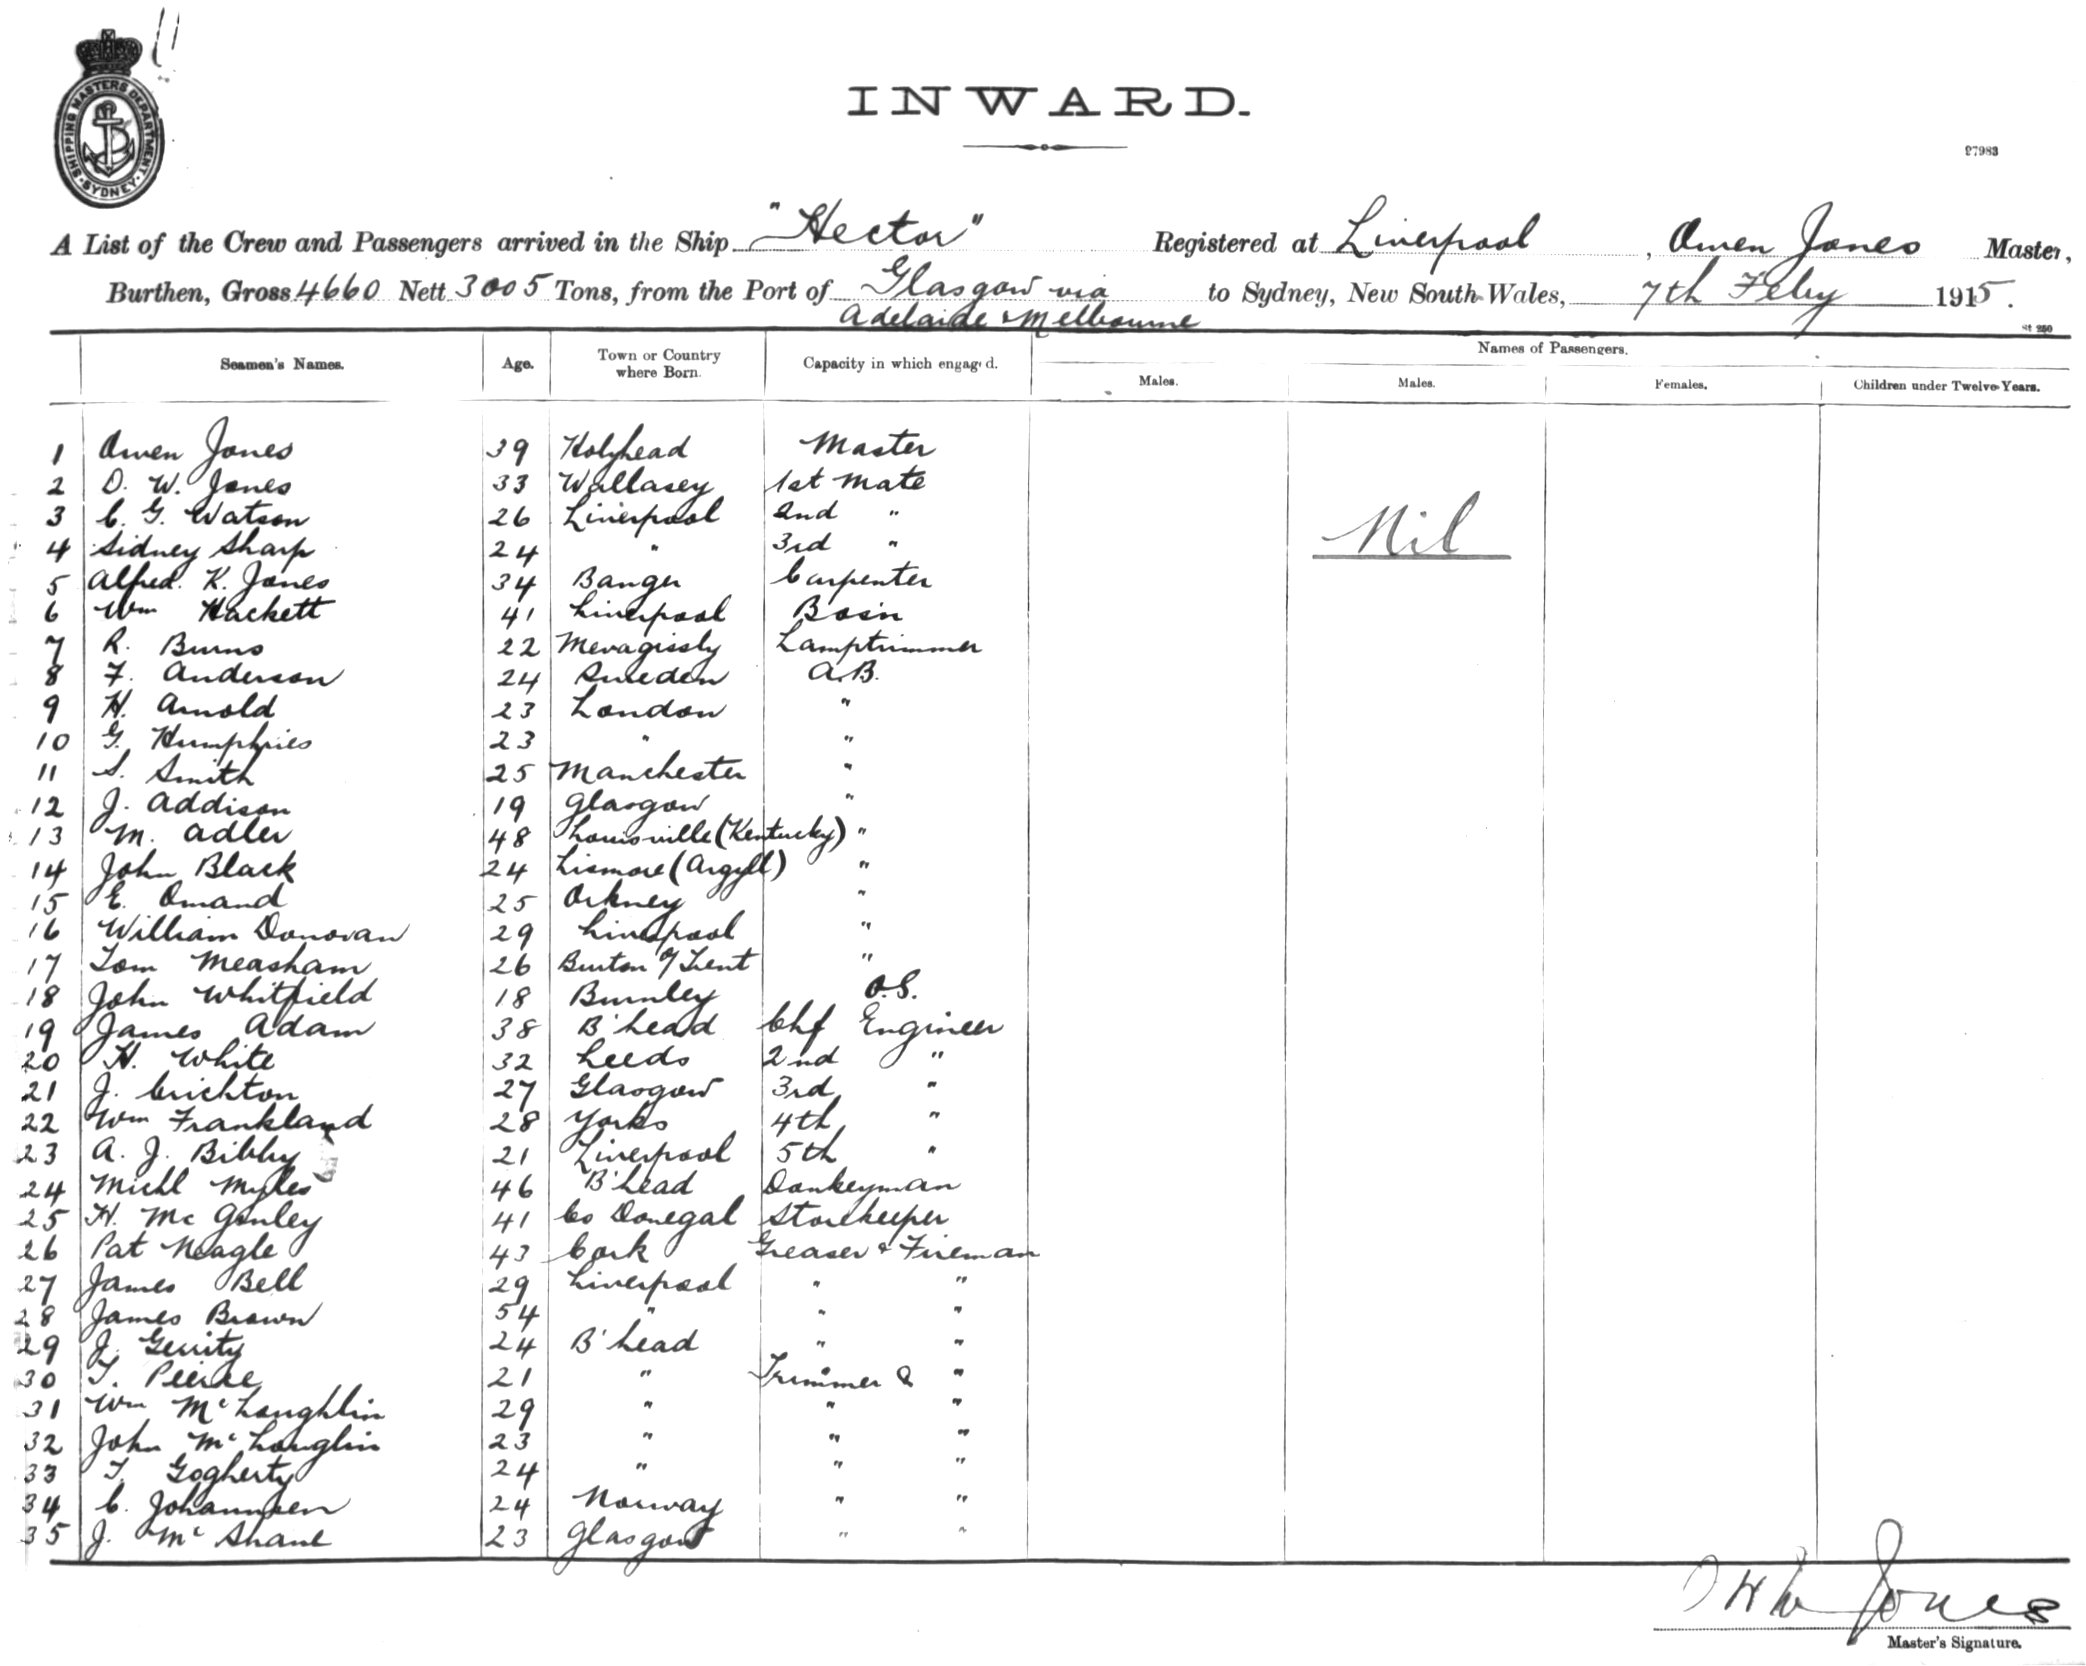 SHIPPING MASTERS DEPARTMENT
SYDNEY
INWARD.
27983
A List of the Crew and Passengers arrived in the Ship "Hector" Registered at Liverpool, Owen Jones Master,
Burthen, Gross 4660 Nett 3005 Tons, from the Port of Glasgow via to Sydney, New South Wales, 7th Feby 1915.
Adelaide & Melbourne
St 250
Seamen's Names. Age. Town or Country where Born. Capacity in which engaged. Names of Passengers.
Males. Males. Females. Children under Twelve Years.
1 Owen Jones 39 Holyhead Master
2 D. W. Jones 33 Wallasey 1st Mate
3 C. G. Watson 26 Liverpool 2nd "
Nil
4 Sidney Sharp 24 " 3rd "
5 Alfred. K. Jones 34 Bangor Carpenter
6 Wm Hackett 41 Liverpool Bosin
7 R. Burns 22 Mevagissly Lamptrimmer
8 F. Anderson 24 Sweden A.B.
9 H. Arnold 23 London "
10 G. Humphries 23 " "
11 S. Smith 25 Manchester "
12 J. Addison 19 Glasgow "
13 M. Adler 48 Louisville (Kentucky) "
14 John Black 24 Lismore (Argyll) "
15 E. Omand 25 Orkney "
16 William Donovan 29 Liverpool "
17 Tom Measham 26 Burton o/ Trent "
18 John Whitfield 18 Burnley O.S.
19 James Adam 38 B'head Chf Engineer
20 H. White 32 Leeds 2nd "
21 J. Crichton 27 Glasgow 3rd "
22 Wm Frankland 28 Yorks 4th "
23 A. J. Bibby 21 Liverpool 5th "
24 Michl Myles 46 B'head Donkeyman
25 H. Mc Ginley 41 Co Donegal Storekeeper
26 Pat Neagle 43 Cork Greaser & Fireman
27 James Bell 29 Liverpool " "
28 James Brown 54 " " "
29 J. Gerrity 24 B'head " "
30 T. Peirce 21 " Trimmer & "
31 Wm McLoughlin 29 " " "
32 John McLouglin 23 " " "
33 T. Gogherty 24 " " "
34 C. Johannsen 24 Norway " "
35 J. McShane 23 Glasgow " "
Jones
Master's Signature.